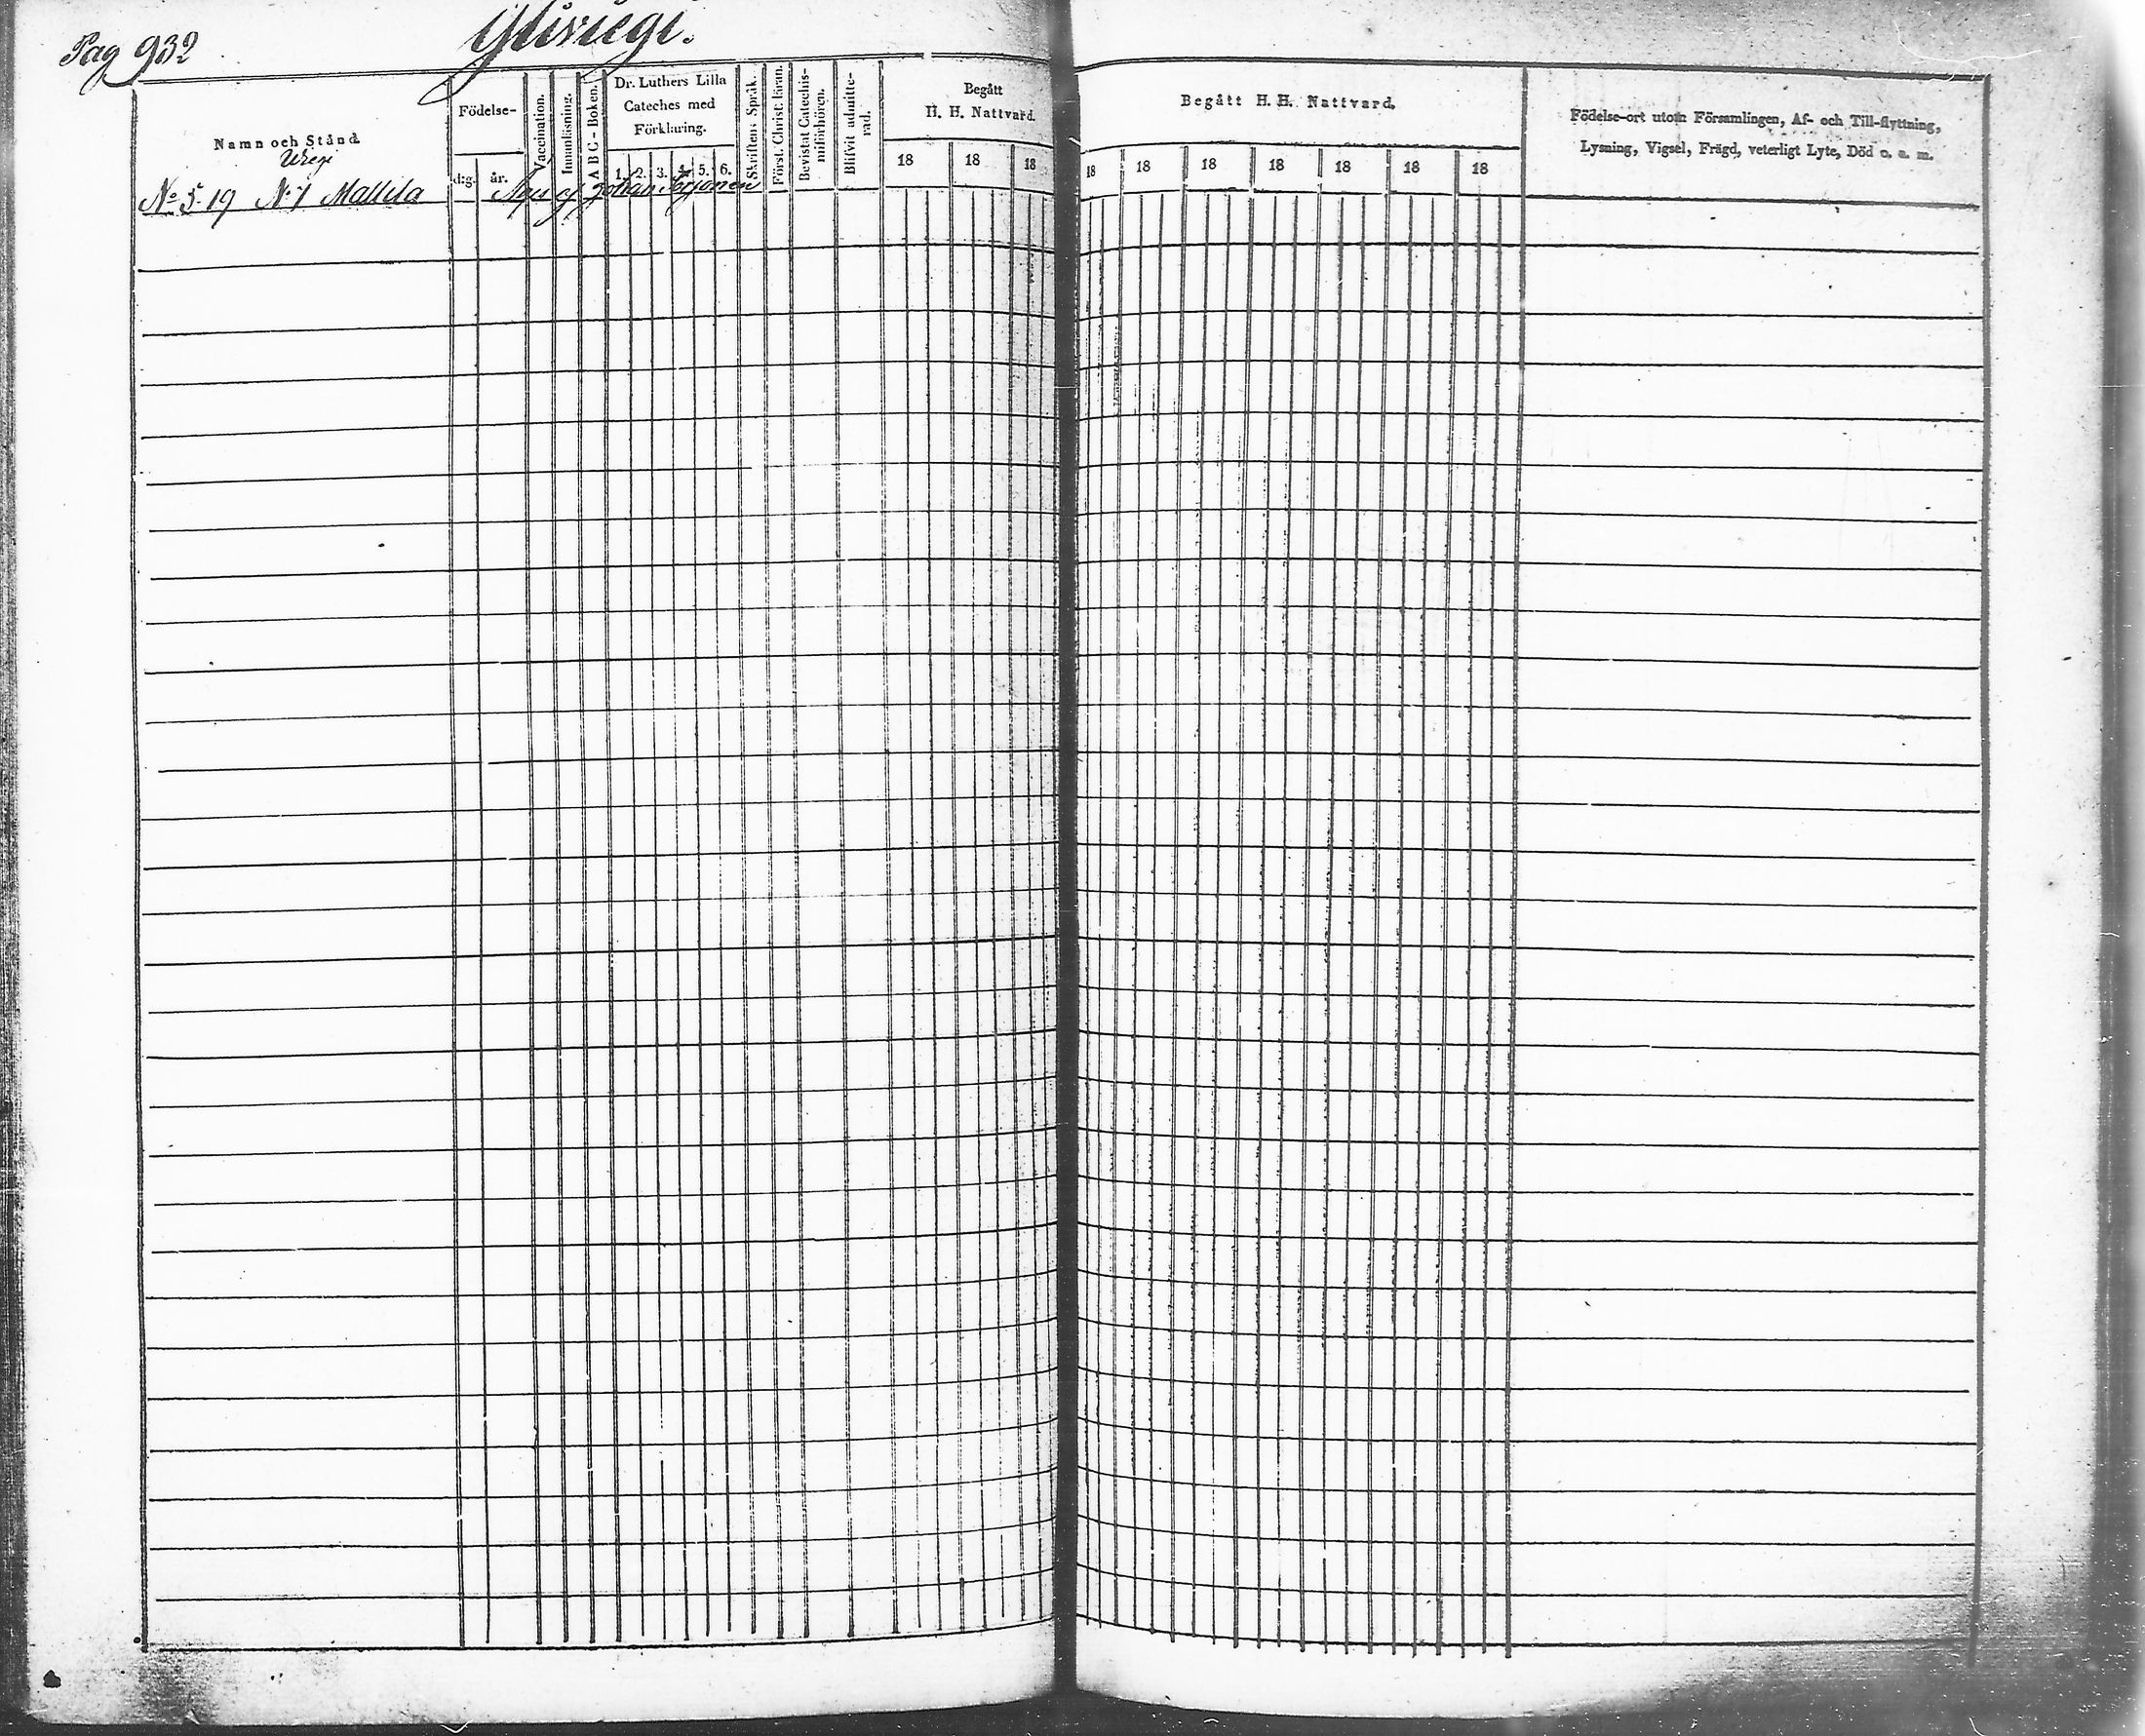 Pag 932
Yliviegi.
Namn och Stånd.
Födelse-
d:g.
år.
Vaccination.
Innanläsning.
A B C - Boken.
Dr. Luthers Lilla
Cateches med
Förklaring.
1. 2. 3. 4. 5. 6.
Skriftens Språk.
Först. Christ. läran.
Bevistat Catechis-
miförhören.
Blifvit admitte-
rad.
Begått
H. H. Nattvard.
18 18 18
Wiegi
No 5-19 No 1 Mattila
Äges af Johan
Begått H. H. Nattvard.
18 18 18 18 18 18 18
Födelse-ort utom Församlingen, Af- och Till-flyttning,
Lysning, Vigsel, Frägd, veterligt Lyte, Död o. s. m.